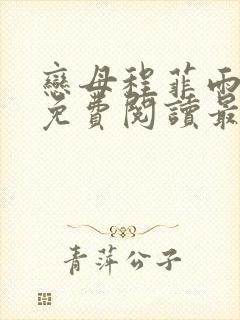 戀母程菲雨
免費閱讀最
青萍公子